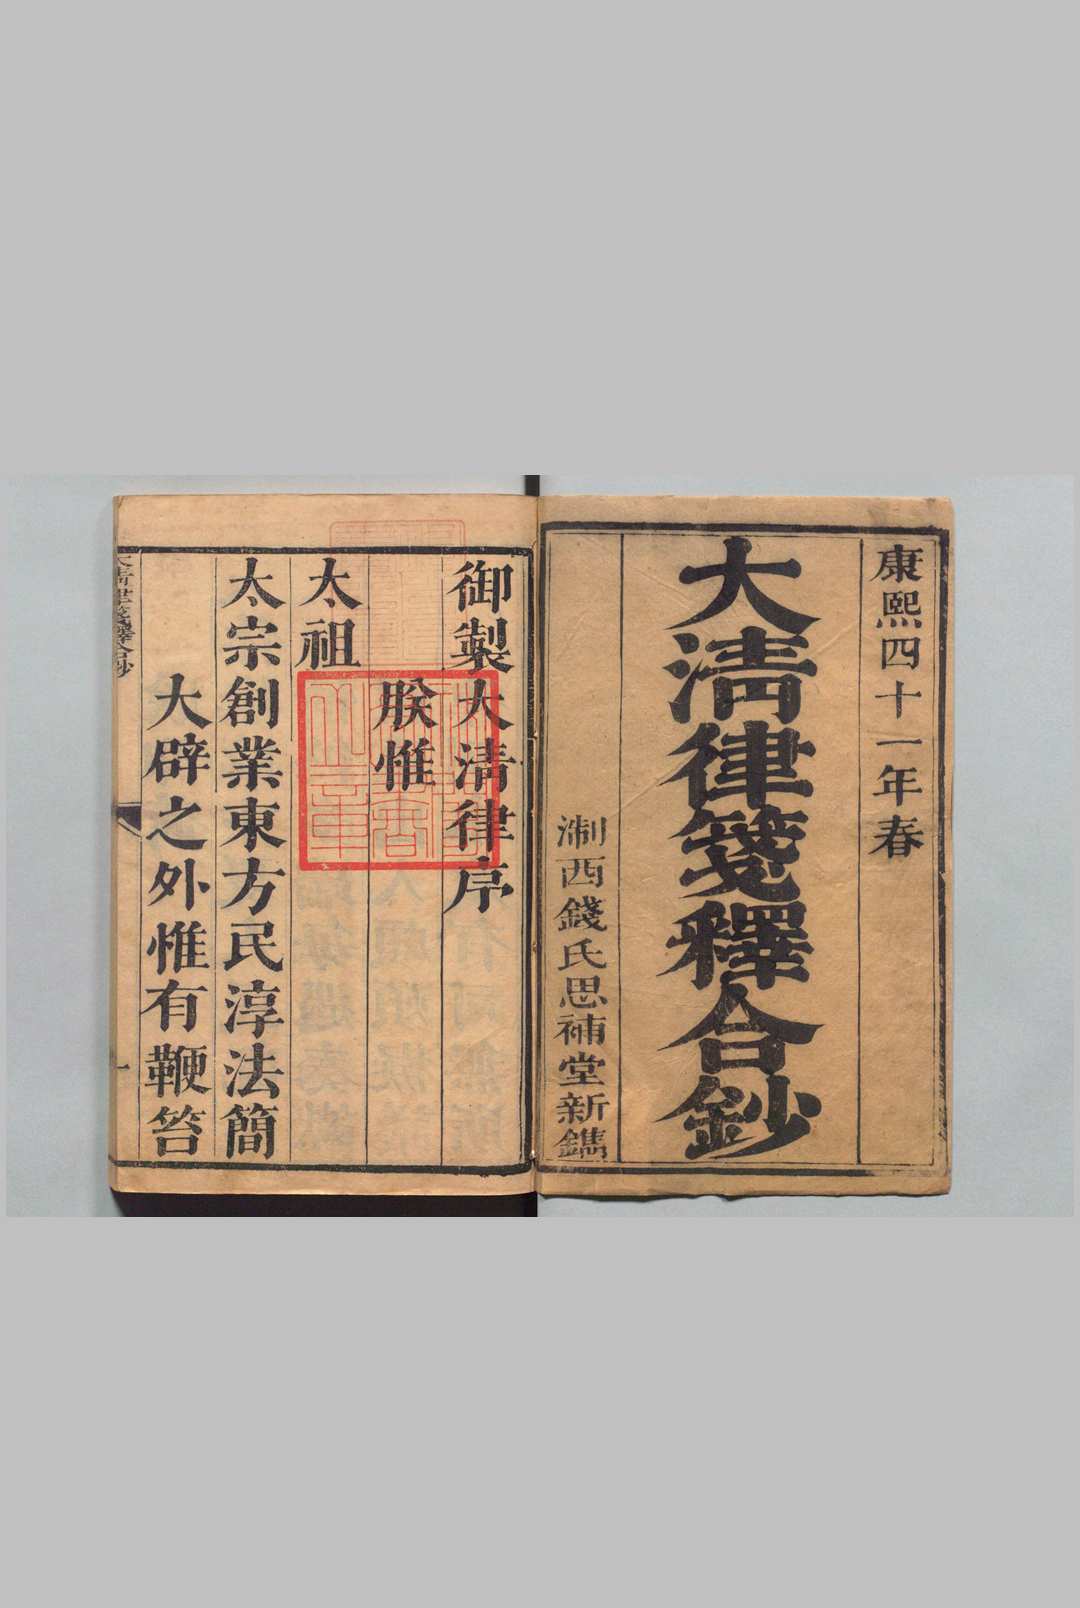 康熙四十一年春
大清律箋釋合鈔
淛西錢氏思補堂新鐫
御製大清律序
朕惟
太祖
太宗創業東方民淳法簡
大辟之外惟有鞭笞
大清律箋釋合鈔
一